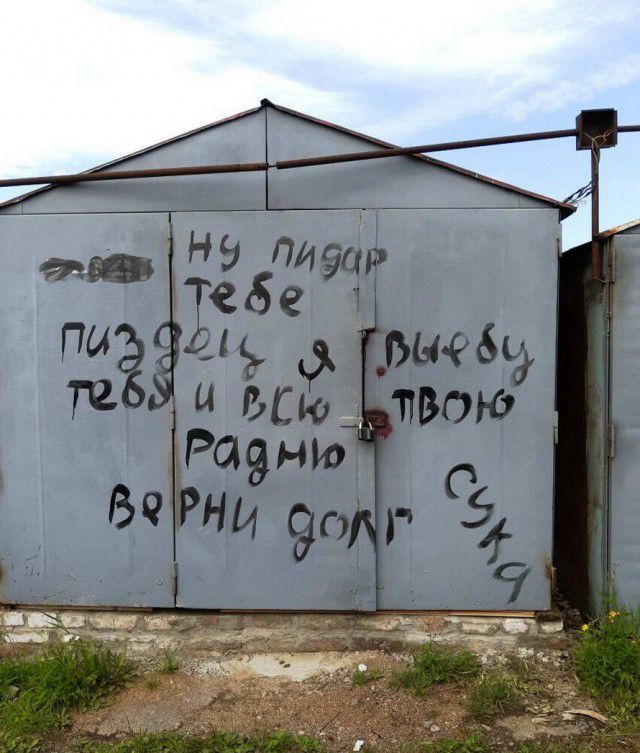 ну пидар
тебе
пиздец я выебу
тебя и всю твою
радню
верни долг
сука